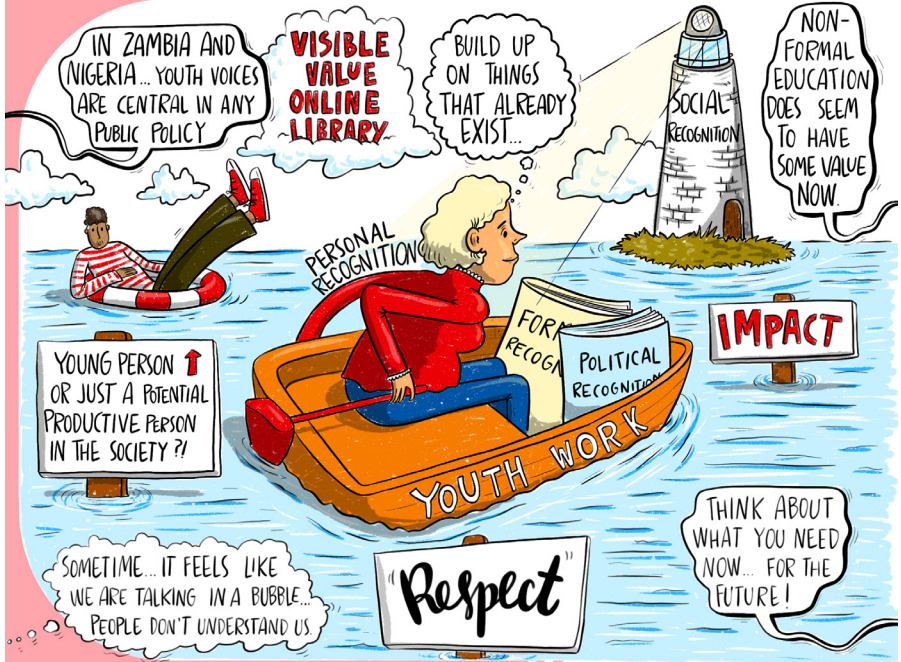 IN ZAMBIA AND
NIGERIA... YOUTH VOICES
ARE CENTRAL IN ANY
PUBLIC POLICY
VISIBLE
VALUE
ONLINE
LIBRARY
BUILD UP
ON THINGS
THAT ALREADY
EXIST...
SOCIAL
RECOGNITION
NON-
FORMAL
EDUCATION
DOES SEEM
TO HAVE
SOME VALUE
NOW.
PERSONAL
RECOGNITION
FORM
RECOGN
POLITICAL
RECOGNITION
IMPACT
YOUNG PERSON
OR JUST A POTENTIAL
PRODUCTIVE PERSON
IN THE SOCIETY?!
YOUTH WORK
SOMETIME... IT FEELS LIKE
WE ARE TALKING IN A BUBBLE...
PEOPLE DON'T UNDERSTAND US.
"Respect"
THINK ABOUT
WHAT YOU NEED
NOW... FOR THE
FUTURE!